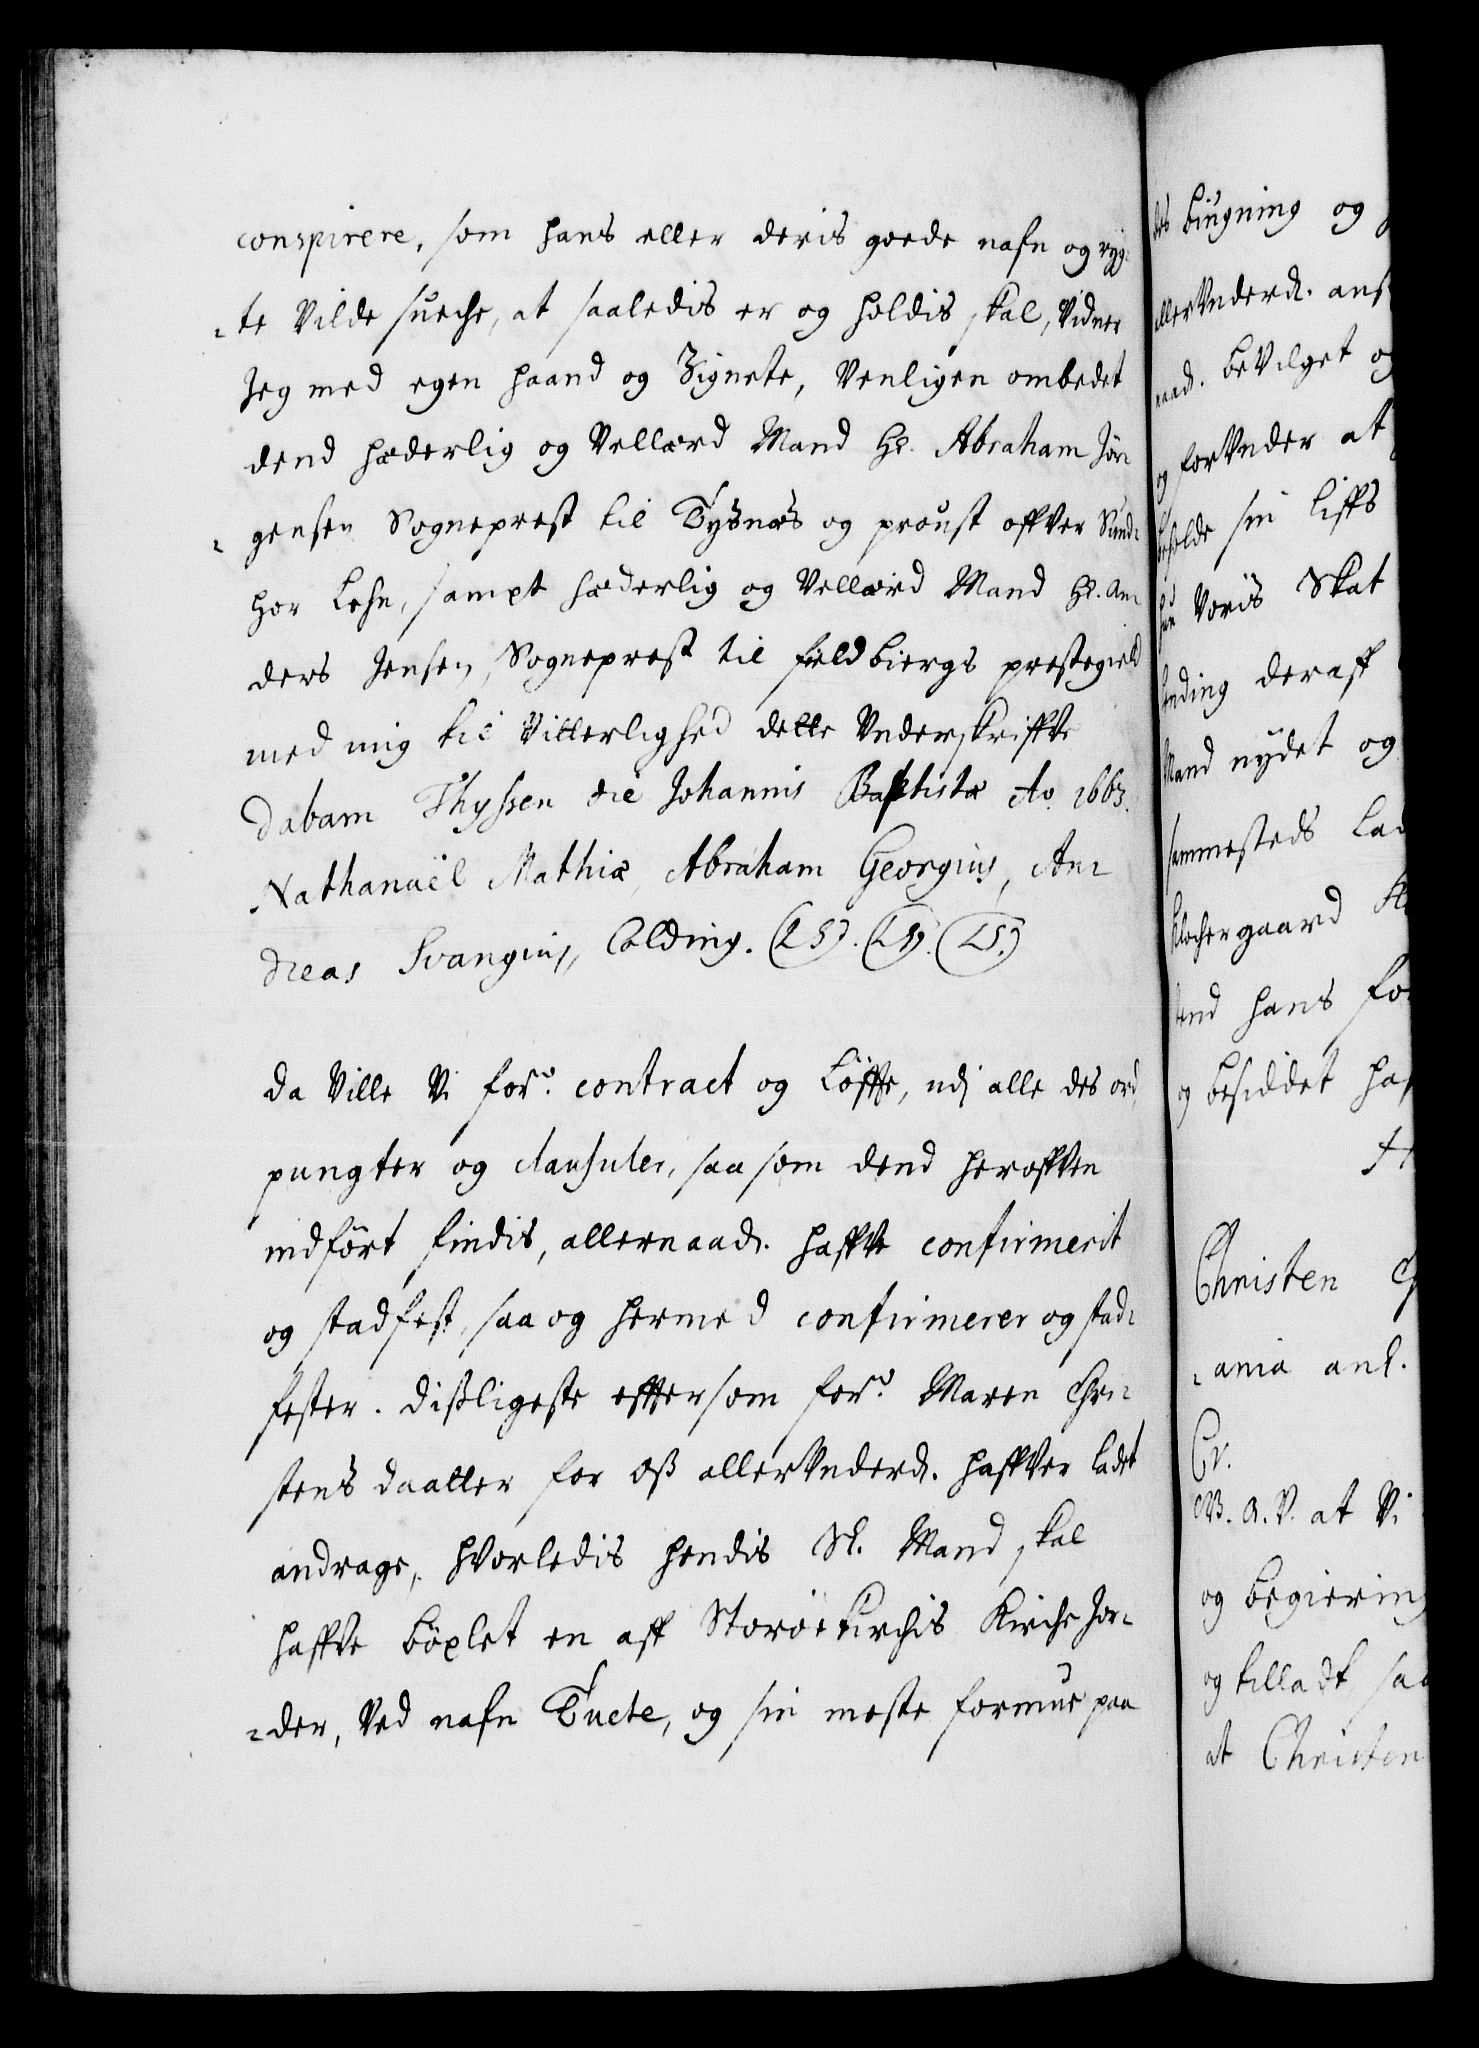 conspirere, som hans eller deris goede nafn og ryg-
-te Vilde sueche, at saaledis er og holdis skal, Vidner
Jeg med egen haand og Zignete, Venligen ombedet
dend hæderlig og Vellærd Mand Hr. Abraham Jør-
- gensen Sogneprest til Tysnæs og proust offver Sund-
hor Lehn, sampt hæderlig og Vellærd Mand Hr. An-
ders Jensen, Sogneprest til fieldbiergs prestegield
med mig til Vitterlighed dette Underskriffve
Dabam Thyssen die Johannis Baptistæ Ao 1663.
Nathanaël Mathiæ, Abraham Georgius, An-
dreas Svangius, Colding. (LS). (LS). (LS.)
da Ville Vi for.ne contract og Løffte, udj alle des ord,
pungter og clausuler, saa som dend heroffven
indført findis, allernaad. haffve confirmerit
og stadfest, saa og hermed confirmerer og stad-
fester. Disligeste efftersom for.ne Maren Chri-
stens daatter for oß allerUnderd. haffver ladet
andrage, hvorledis hendis Sl. Mand skal
haffve böxlet en aff Storöe Kirchis Kirche Jor-
-der, Ved nafn Tuete, og sin meste formue paa
des biugning og
allerUnderd. ans
naad. beVilget og
og forUnder at
beholde sin liffs
Voris Skat
deraff
Mand nydet og
sammesteds
Klochergaard
dend hans
og besiddet
Christen
-ania anl.
Gr.
W. A. V. at Vi
og begiering
og tilladt, saa
at Christen